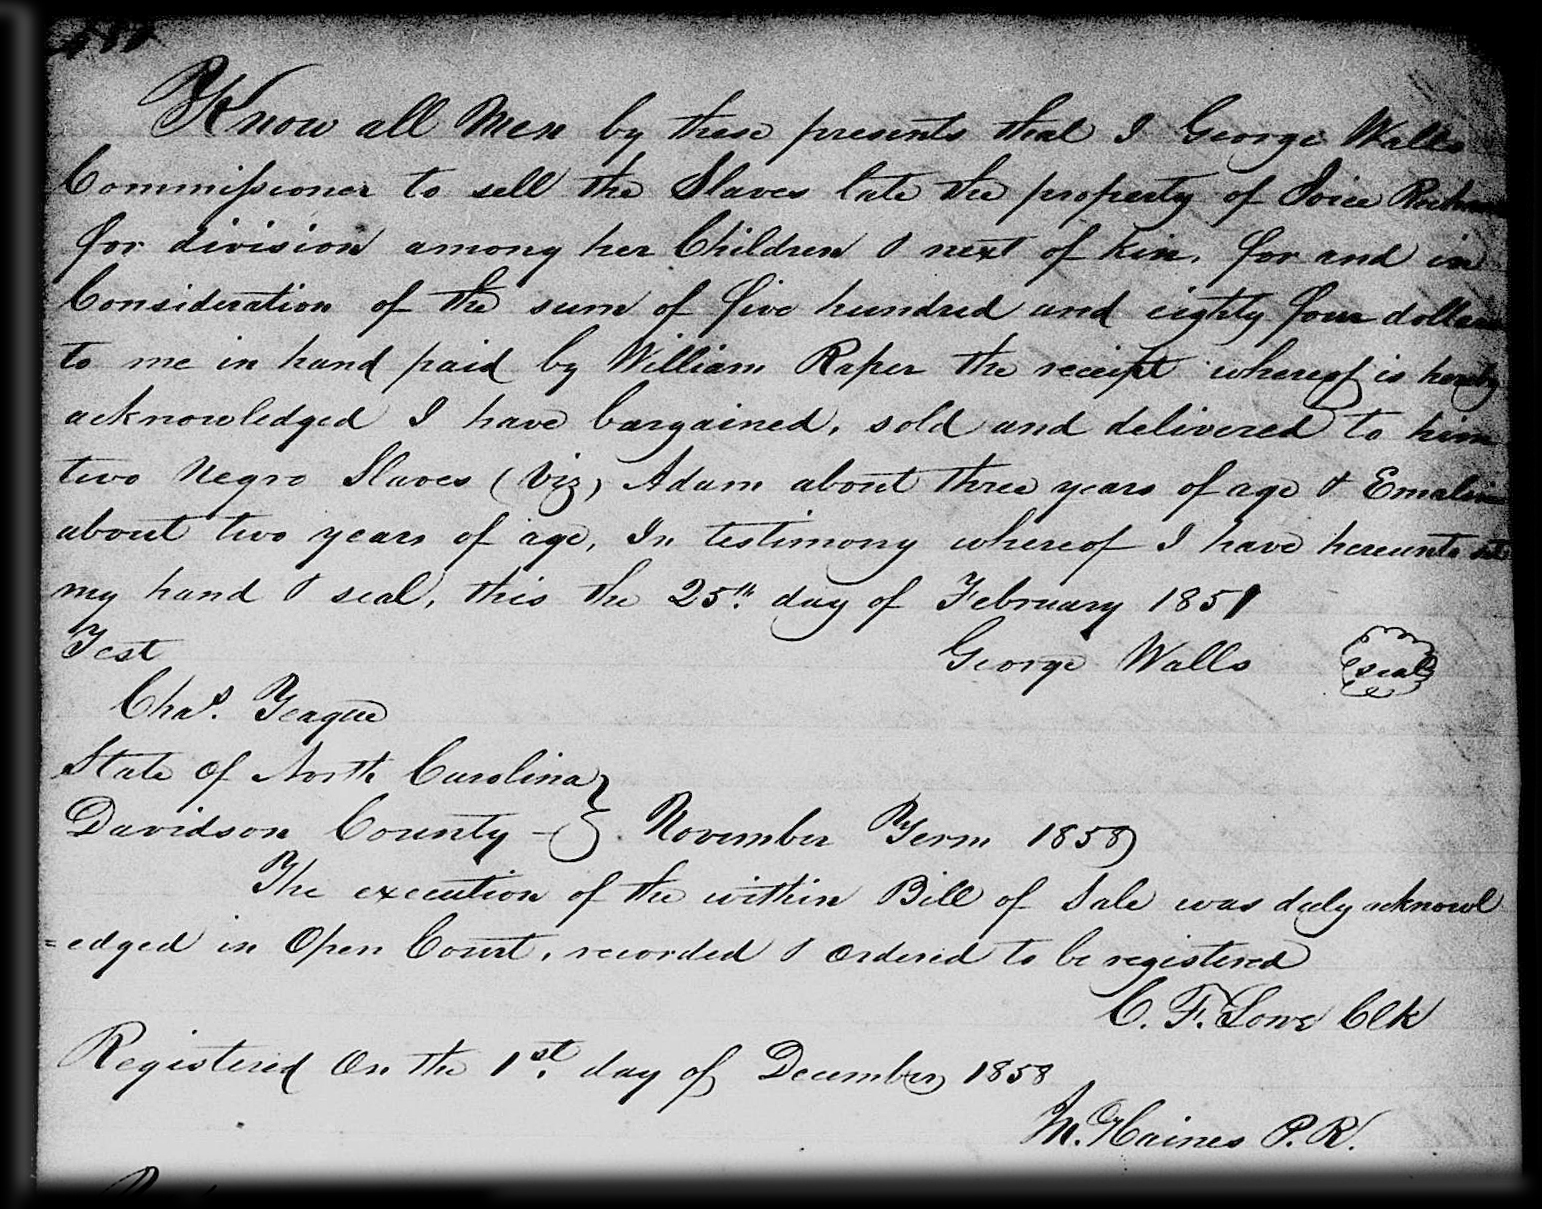 Know all Men by these presents that I George Walls
Commissioner to sell the Slaves late the property of Joice
for division among her Children & next of kin, for and in
Consideration of the sum of five hundred and eighty four dollars
to me in hand paid by William Raper the receipt whereof is hereby
acknowledged I have bargained, sold and delivered to him
two Negro Slaves (Viz) Adam about three years of age & Emaline
about two years of age, In testimony whereof I have hereunto set
my hand & seal, this the 25th. day of February 1851
Test George Walls seal
Chas. Teague
State of North Carolina }
Davidson County - } November Term 1858
The execution of the within Bill of Sale was duly acknowl
=edged in Open Court, recorded & ordered to be registered
C. F. Lowe Clk
Registered On the 1st. day of December 1858
M. Haines P. R.